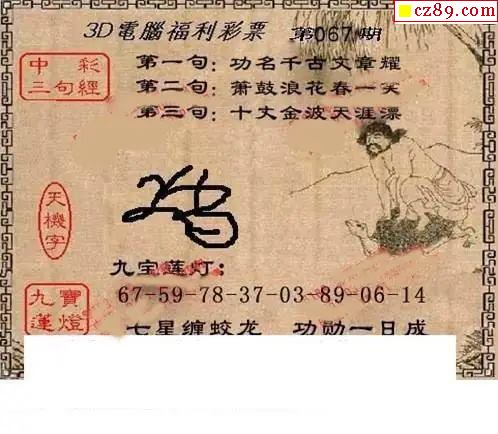 cz89.com
3D電腦福利彩票 第067期
中彩
三句經
第一句：功名千古文章耀
第二句：萧鼓浪花春一笑
第三句：十丈金波天涯漂
天機字
九宝莲灯：
67-59-78-37-03-89-06-14
九寶
蓮燈
七星缠蛟龙 功勋一日成